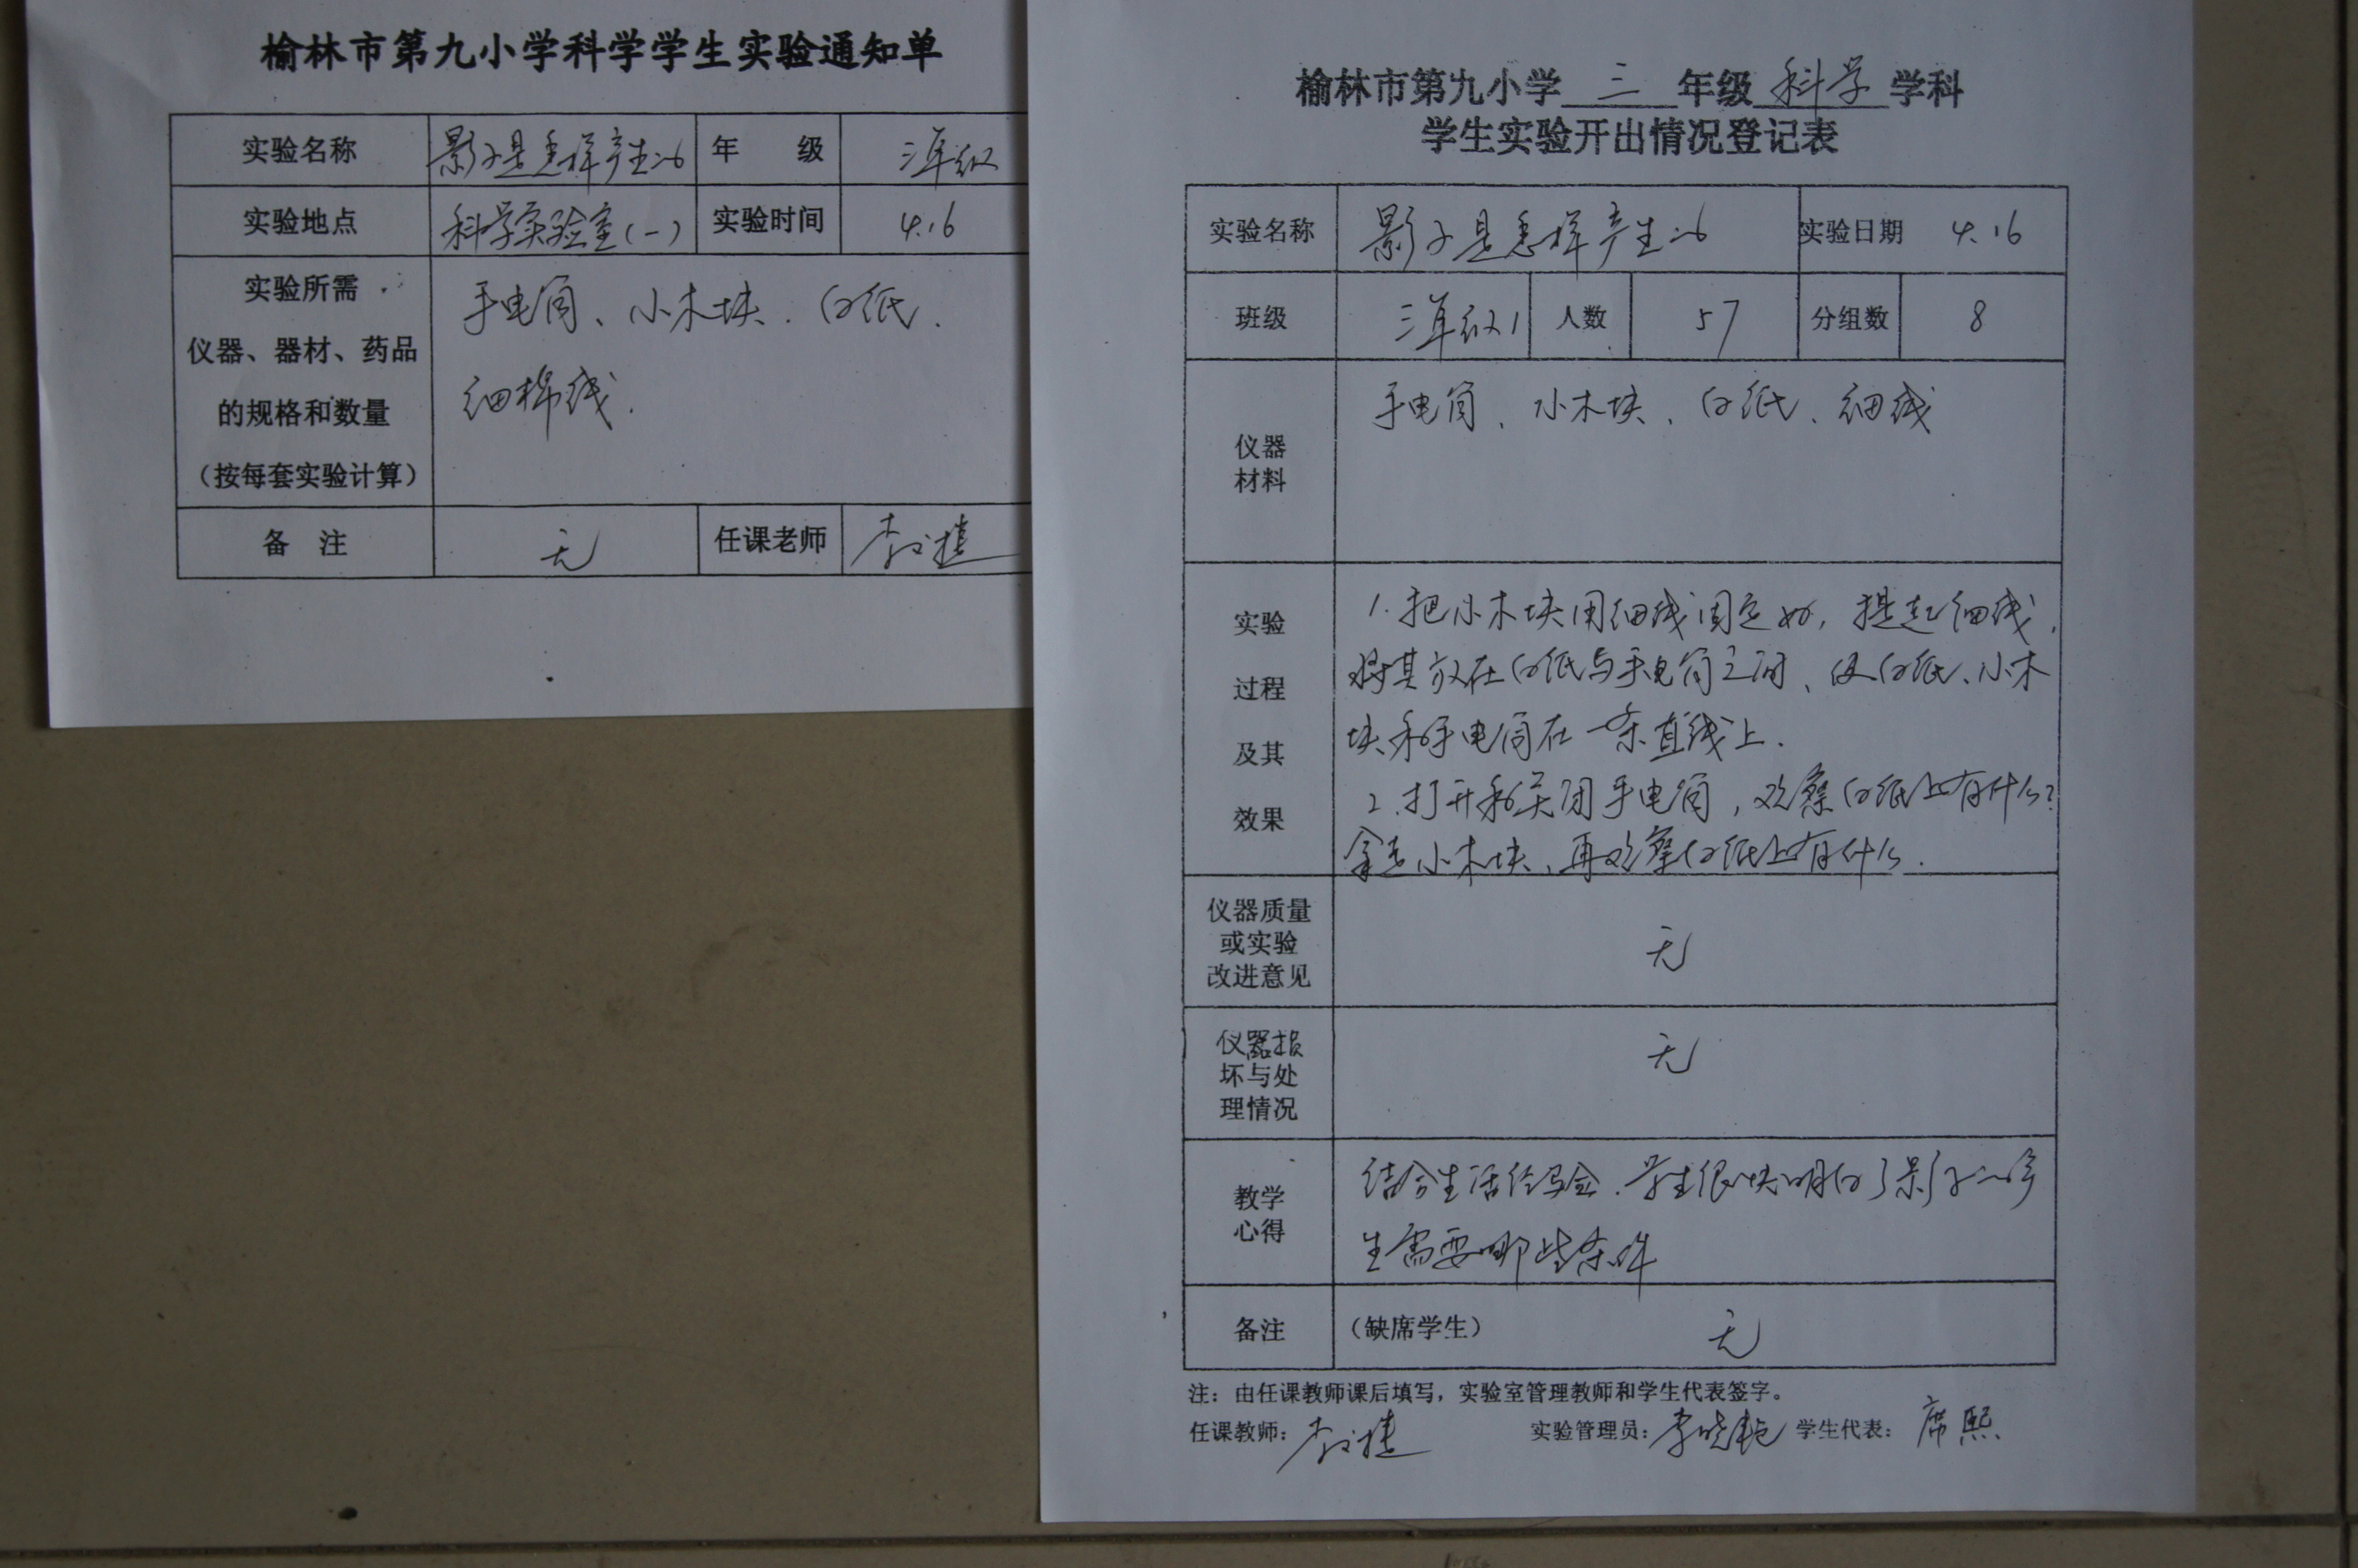 榆林市第九小学科学学生实验通知单
实验名称 影子是怎样产生的 年 级 三年级
实验地点 科学实验室(一) 实验时间 4.16
实验所需
仪器、器材、药品
的规格和数量
(按每套实验计算)
手电筒、小木块、白纸、
细棉线.
备 注 无 任课老师
榆林市第九小学 三 年级 科学 学科
学生实验开出情况登记表
实验名称 影子是怎样产生的 实验日期 4.16
班级 三年级1 人数 57 分组数 8
仪器
材料
手电筒、小木块、白纸、细线
实验
过程
及其
效果
1.把小木块用细线固定好,提起细线,
将其放在白纸与手电筒之间、使白纸、小木
块和手电筒在一条直线上.
2.打开和关闭手电筒,观察白纸上有什么?
拿走小木块、再观察白纸上有什么.
仪器质量
或实验
改进意见
无
仪器损
坏与处
理情况
无
教学
心得
结合生活经验.学生很快明白了影子的产
生需要哪些条件
备注 (缺席学生) 无
注:由任课教师课后填写,实验室管理教师和学生代表签字。
任课教师: 实验管理员:李晓艳 学生代表:席熙